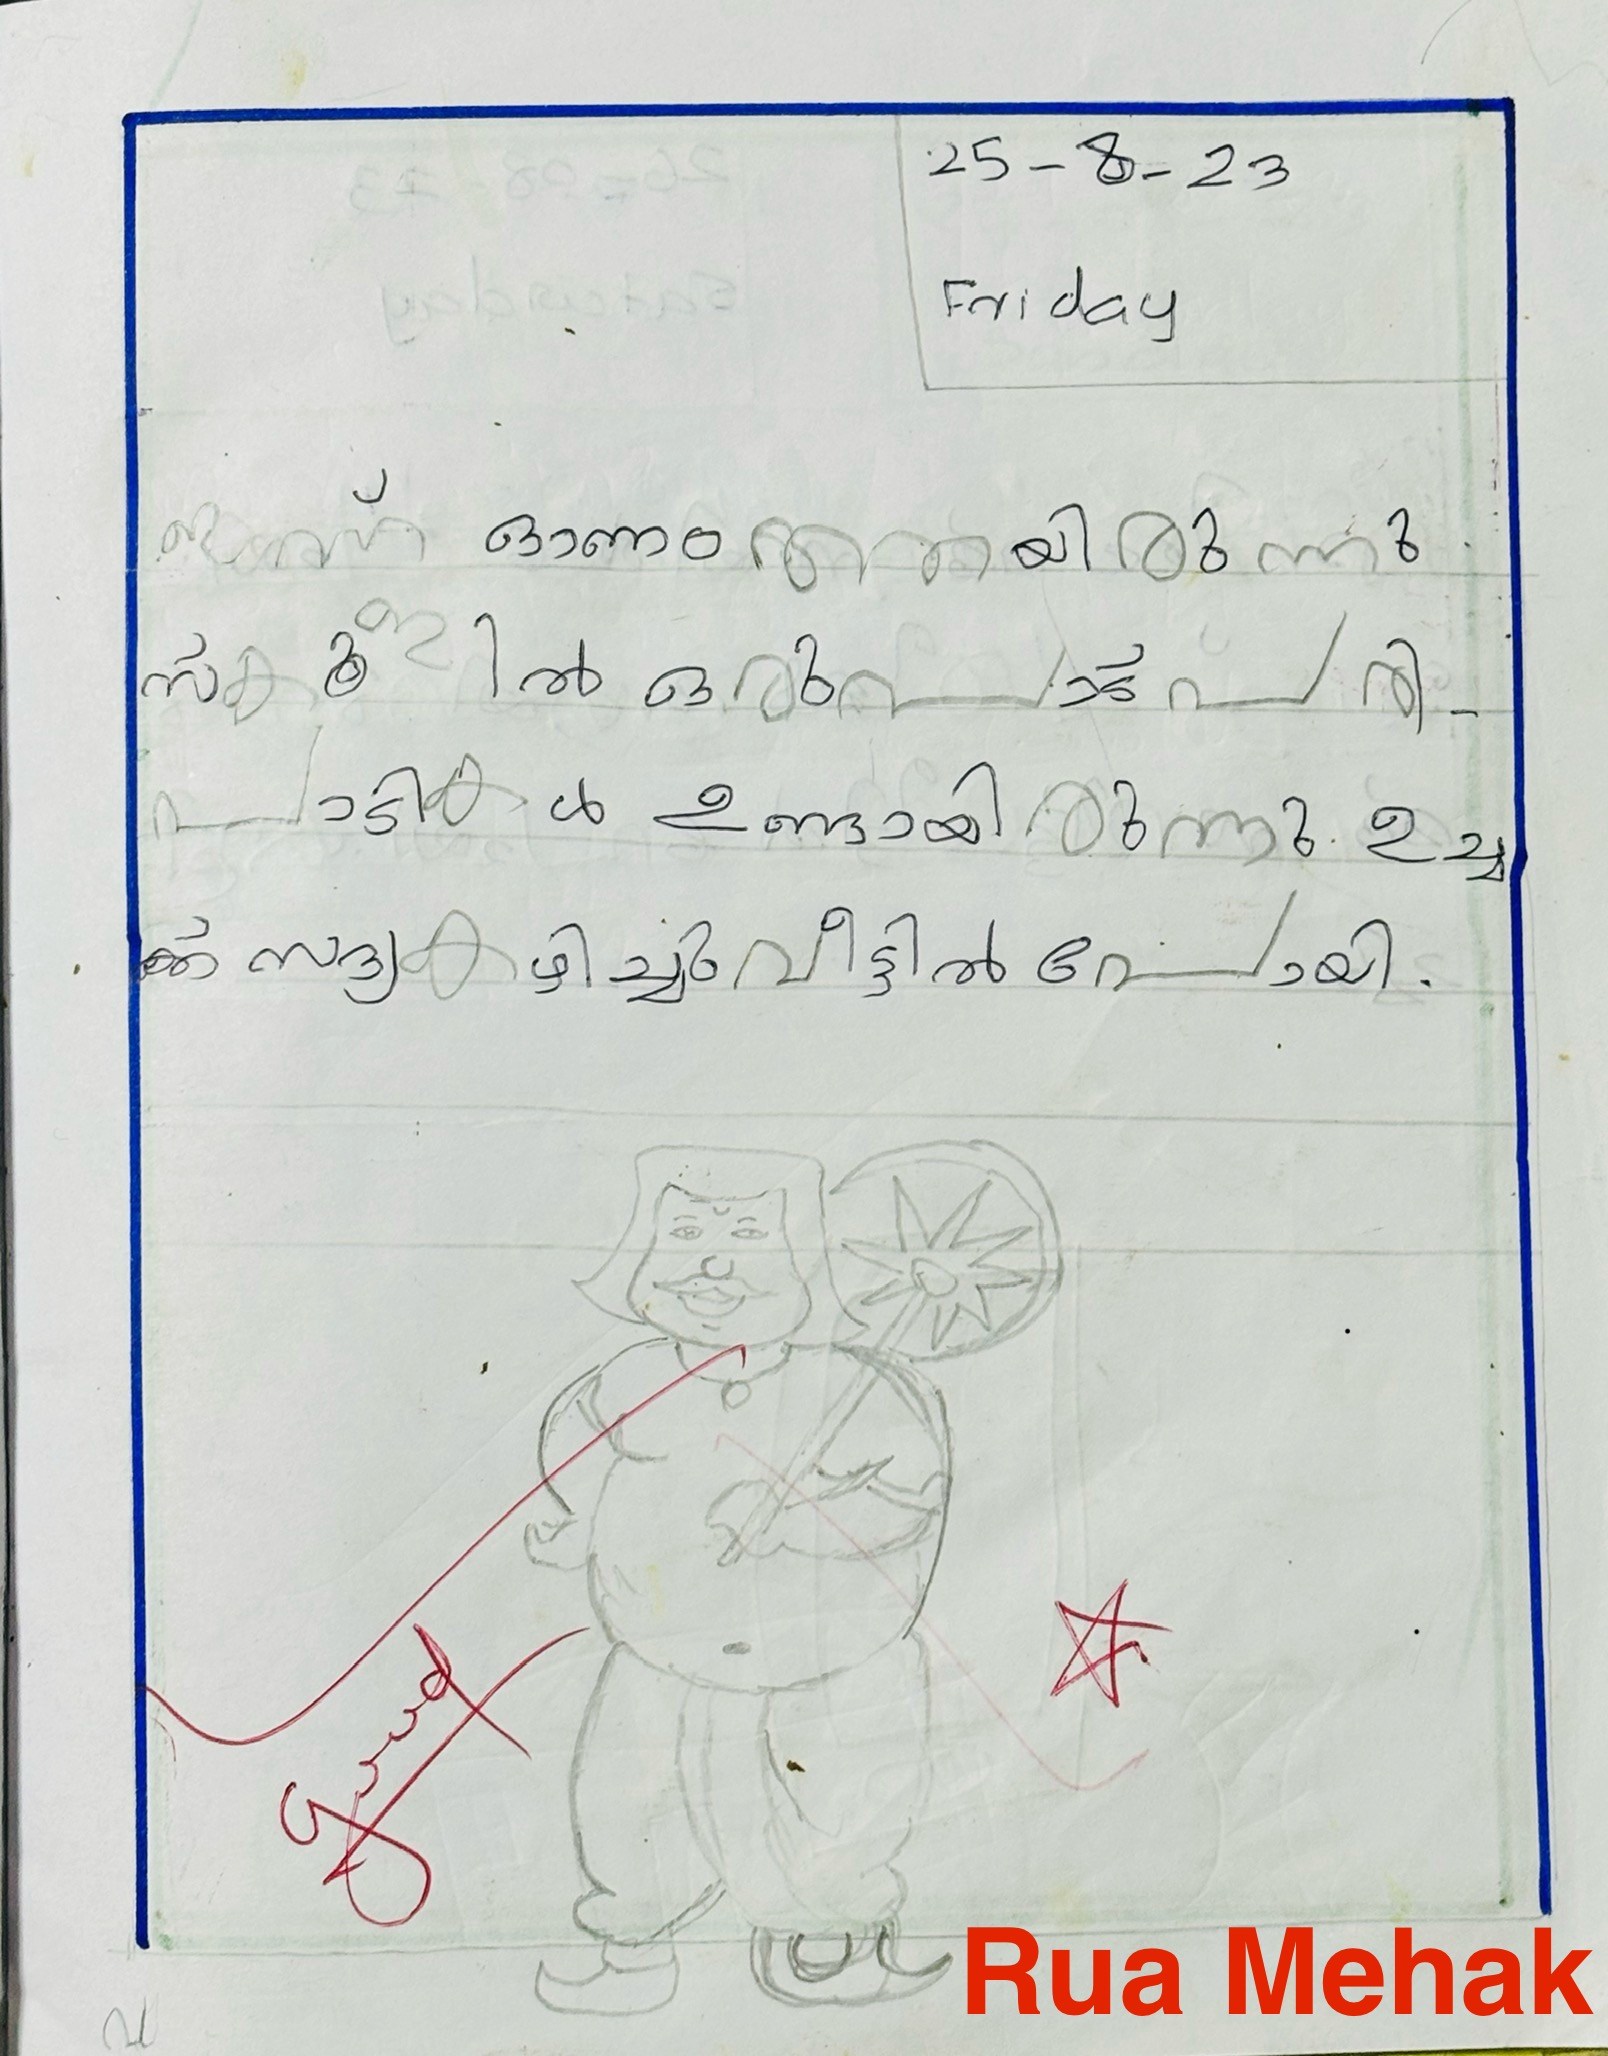 25-8-23
Friday
ഇന്ന് ഓണം ആയിരുന്നു.
സ്കൂളിൽ ഒരുപാട് പരി-
പാടികൾ ഉണ്ടായിരുന്നു. ഉച്ച
ക്ക് സദ്യകഴിച്ചു വീട്ടിൽ പോയി.
Good
Rua Mehak